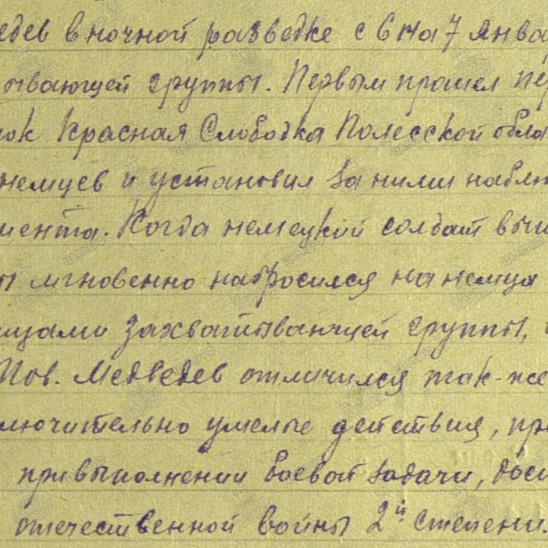 едев в ночной разведке с 6 на 7 янва
ывающей группы. Первым прошел пер
ок Красная Слободка Полесской обла
немцев и установил за ними наблю
мента. Когда немецкий солдат выш
ы мгновенно набросился на немца
ищами захватывающей группы,
Тов. Медведев отличился так-же
лючительно умелые действия, пр
при выполнении боевой задачи, дос
отечественной войны 2й степени.